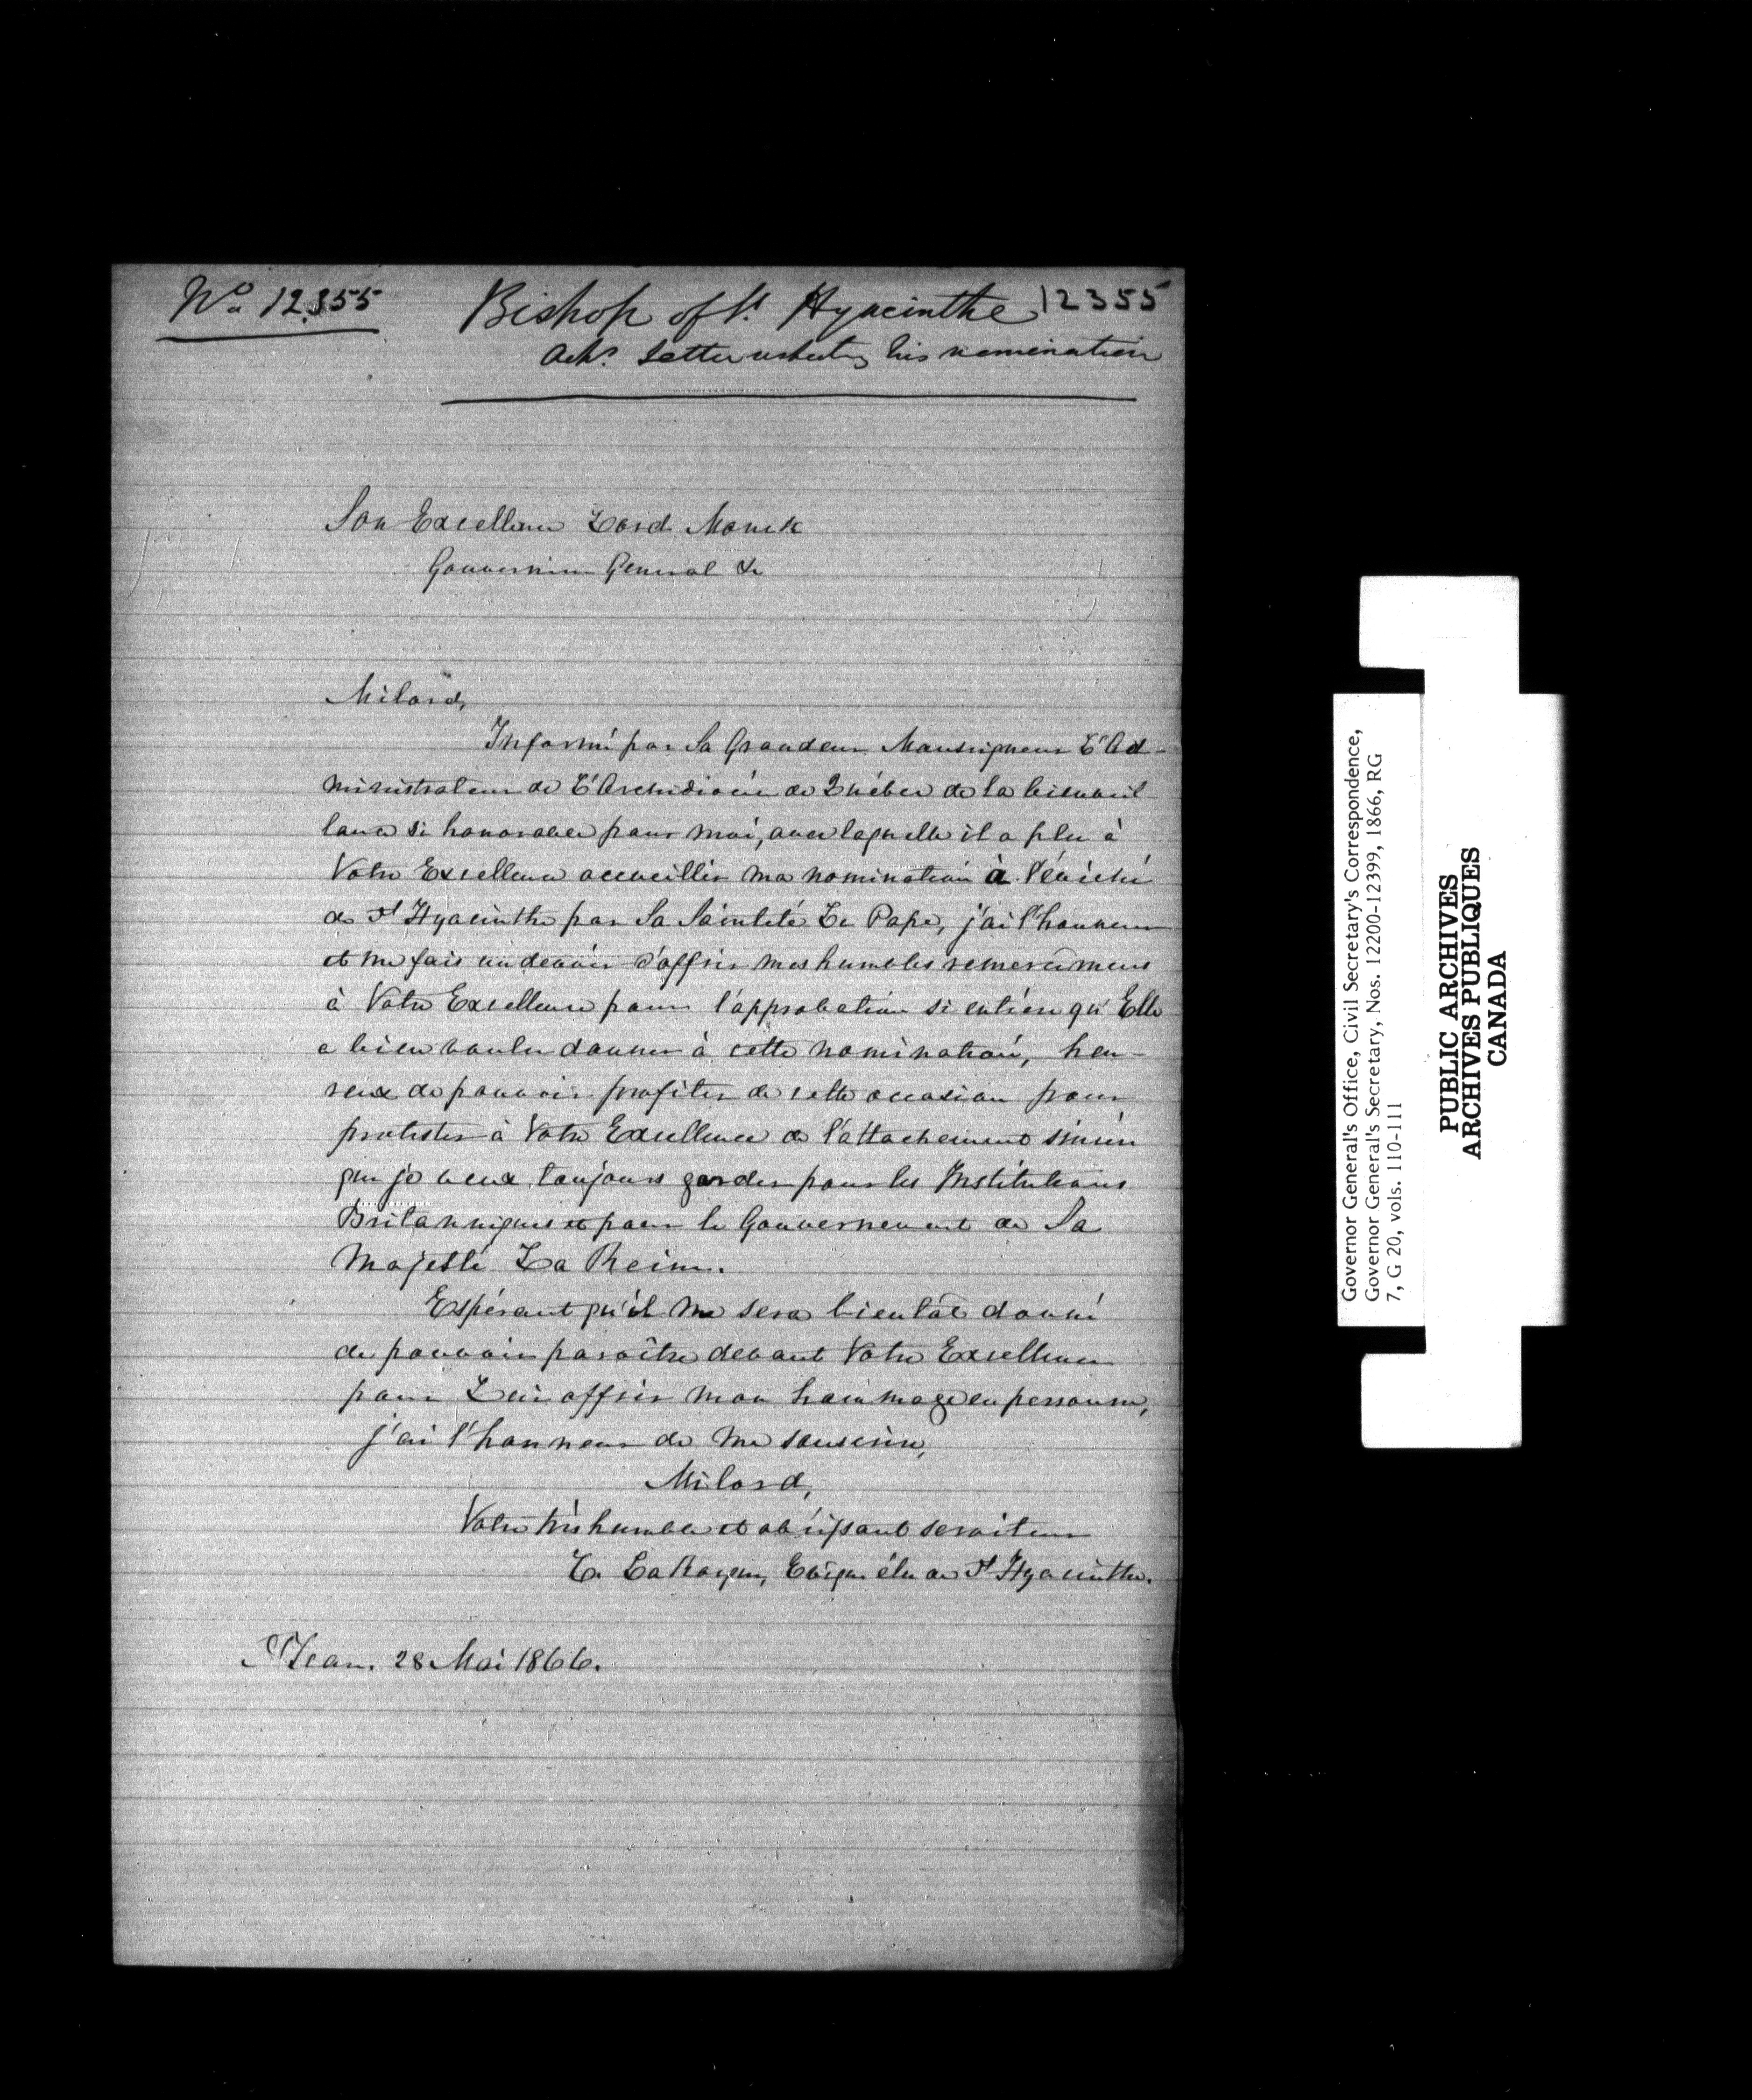 No. 12355
Bishop of St. Hyacinthe 12355
Ack. Letter his nomination
Son Excellence Lord Monck
Gouverneur General &c
Milord,
Informé par Sa Grandeur Monseigneur L'Ad-
ministrateur de L'Archidiocèse de Québec de la bienveil
lance si honorable pour moi, avec laquelle il a plu à
Votre Excellence accueillir ma nomination à l'évêché
de St Hyacinthe par Sa Sainteté Le Pape, j'ai l'honneur
et me fais un devoir d'offrir mes humbles remercîmens
à Votre Excellence pour l'approbation si entière qu'Elle
a bien voulu donner à cette nomination, heu-
reux de pouvoir profiter de cette occasion pour
protester à Votre Excellence de l'attachement sincère
que je veux toujours garder pour les Institutions
Britanniques et pour le Gouvernement de Sa
Majesté La Reine.
Espérant qu'il me sera bientôt donné
de pouvoir paroître devant Votre Excellence
pour Lui offrir mon hommage en personne,
j'ai l'honneur de me souscrire,
Milord,
Votre très humble et obéissant serviteur
C. LaRocque, Evêque élu de St Hyacinthe.
St Jean. 28 Mai 1866.
Governor General's Office, Civil Secretary's Correspondence,
Governor General's Secretary, Nos. 12200-12399, 1866, RG
7, G 20, vols. 110-111
PUBLIC ARCHIVES
ARCHIVES PUBLIQUES
CANADA